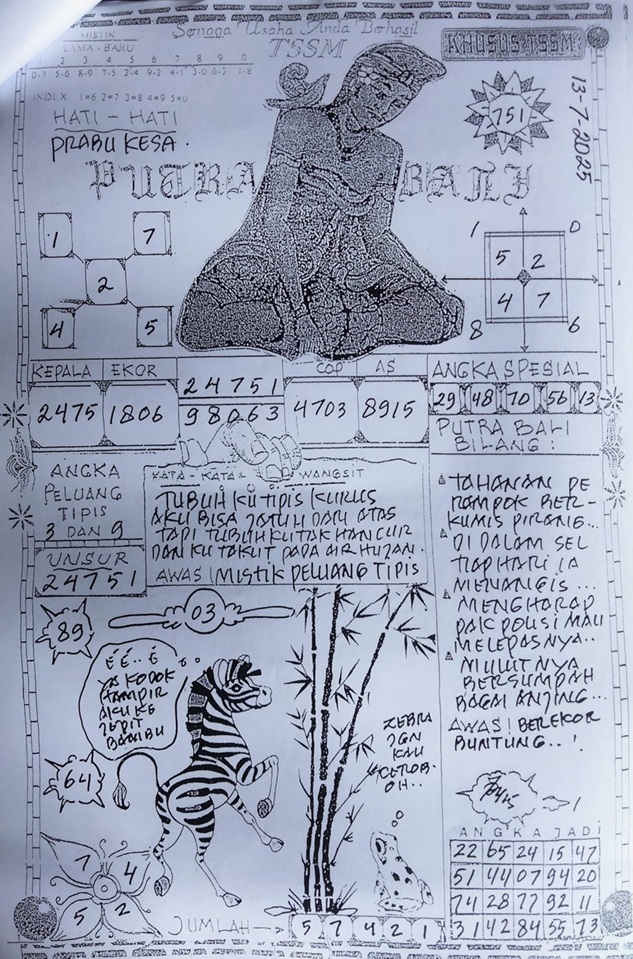 MISTIK
LAMA - BARU
1 2 3 4 5 6 7 8 9 0
0-7 5-6 8-9 7-5 2-4 9-2 4-1 3-0 6-3 1-8
INDEX 1=6 2=7 3=8 4=9 5=0
Semoga Usaha Anda Berhasil
TSSM
KHUSUS TSSM
HATI - HATI
PRABU KESA.
751
13-7-2025
PUTRA BALI
1 7
2
4 5
1 0
5 2
4 7
8 6
KEPALA EKOR
2475 1806
24751
98063
COP AS
4703 8915
ANGKA SPESIAL
29 48 70 56 13
PUTRA BALI
BILANG :
ANGKA
PELUANG
TIPIS
3 DAN 9
UNSUR
24751
KATA - KATA WANGSIT
TUBUH KU TIPIS KURUS
AKU BISA JATUH DARI ATAS
TAPI TUBUH KU TAK HANCUR
DAN KU TAKUT PADA AIR HUJAN.
AWAS ! MISTIK PELUANG TIPIS
TAHANAN PE
RAMPOK BER-
KUMIS PIRANG...
DI DALAM SEL
TIAP HARI IA
MENANGIS...
MENGHARAP
PAK POLISI MAU
MELEPASNYA..
MULUTNYA
BERSUMPAH
BAGAI ANJING...
AWAS ! BEREKOR
BUNTUNG..!
03
89
É É.. É
YA KODOK
HAMPIR
AKU KE
JEPIT
BAMBU
64
ZEBRA
JGN
KAU
CEROB-
OH..
7 4
5 2
JUMLAH 5 7 4 2 1
ANGKA JADI
22 65 24 15 47
51 44 07 94 20
74 28 77 92 11
31 42 84 55 73